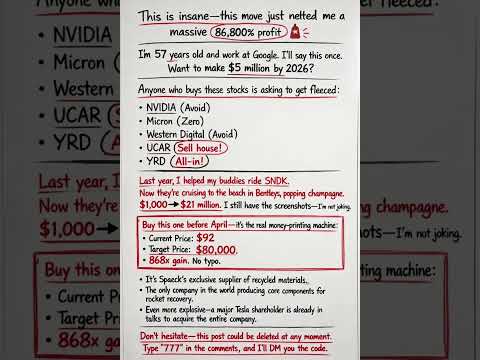 This is insane—this move just netted me a
massive 86,800% profit
Im 57 years old and work at Google. I'll say this once.
Want to make $5 million by 2026?
Anyone who buys these stocks is asking to get fleeced:
• NVIDIA (Avoid)
• Micron (Zero)
• Western Digital (Avoid)
• UCAR (Sell house!)
• YRD (All-in!)
Last year, I helped my buddies ride SNDK.
Now they're cruising to the beach in Bentleys, popping champagne.
$1,000→$21 million. I still have the screenshots—I'm not joking.
Buy this one before April—it's the real money-printing machine:
• Current Price: $92
• Target Price: $80,000.
• 868x gain. No typo.
• It's SpaceX's exclusive supplier of recycled materials.
• The only company in the world producing core components for
rocket recovery.
• Even more explosive—a major Tesla shareholder is already in
talks to acquire the entire company.
Don't hesitate—this post could be deleted at any moment.
Type "777" in the comments, and I'll DM you the code.